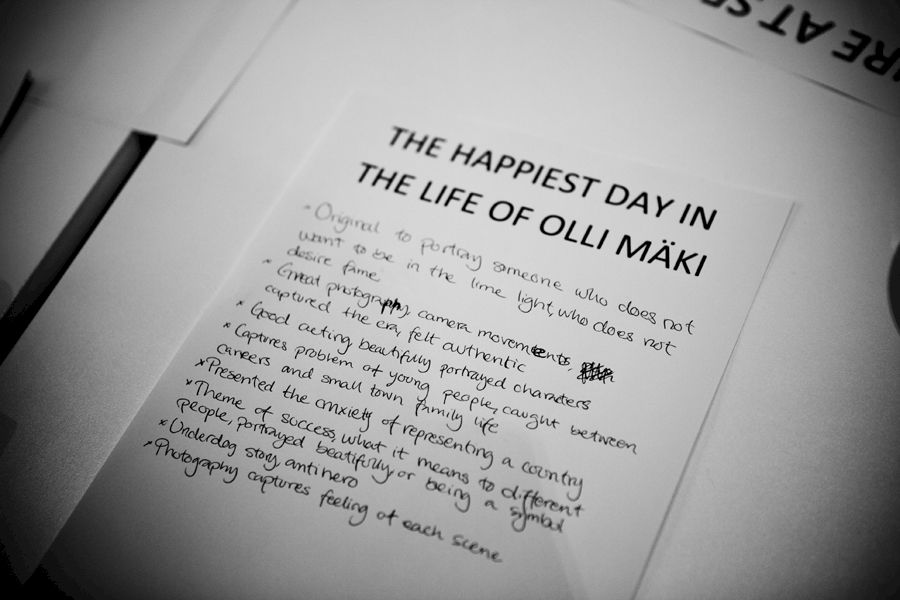 AT
THE HAPPIEST DAY IN
THE LIFE OF OLLI MÄKI
× Original to portray someone who does not
want to be in the lime light, who does not
desire fame
× Great photography, camera movements,
captured the era, felt authentic
× Good acting, beautifully portrayed characters
× Captures problem of young people, caught between
careers and small town family life
× Presented the anxiety of representing a country
× Theme of success, what it means to different
people, portrayed beatifully or being a symbol
× Underdog story, antihero
× Photography captures feeling of each scene